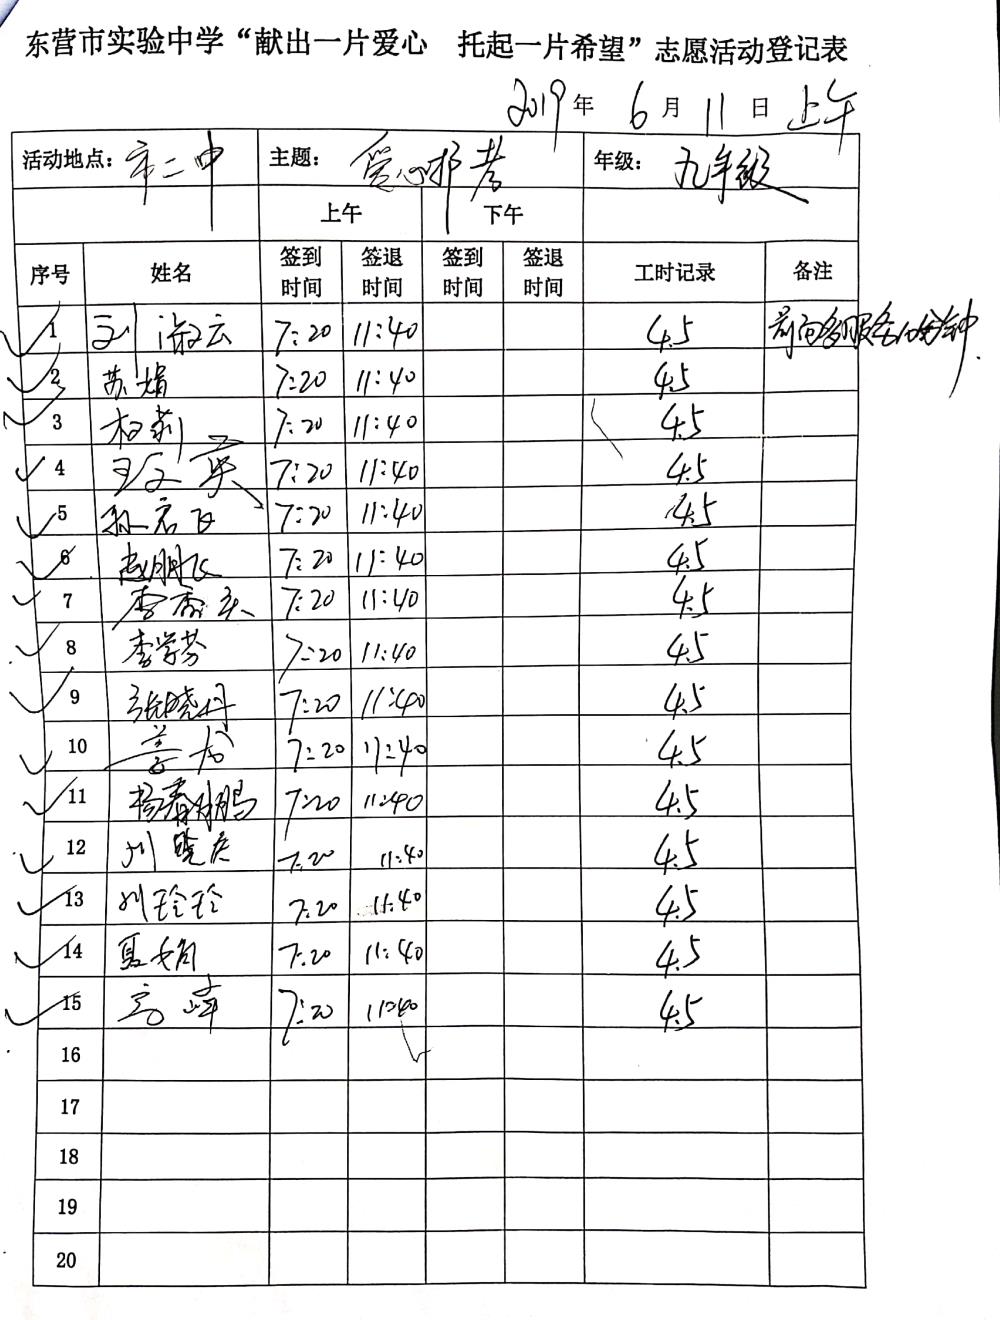 东营市实验中学“献出一片爱心 托起一片希望”志愿活动登记表
2019年 6月 11日 上午
活动地点：市二中 主题：爱心助考 年级：九年级
上午 下午
序号 姓名 签到时间 签退时间 签到时间 签退时间 工时记录 备注
1 刘淑云 7:20 11:40 4.5
2 苏娟 7:20 11:40 4.5
3 杨莉 7:20 11:40 4.5
4 7:20 11:40 4.5
5 孙君飞 7:20 11:40 4.5
6 赵朋飞 7:20 11:40 4.5
7 李 7:20 11:40 4.5
8 李学芬 7:20 11:40 4.5
9 张晓丹 7:20 11:40 4.5
10 7:20 11:40 4.5
11 杨春鹏 7:20 11:40 4.5
12 刘晓庆 7:20 11:40 4.5
13 刘玲玲 7:20 11:40 4.5
14 夏娟 7:20 11:40 4.5
15 高峰 7:20 11:40 4.5
16
17
18
19
20